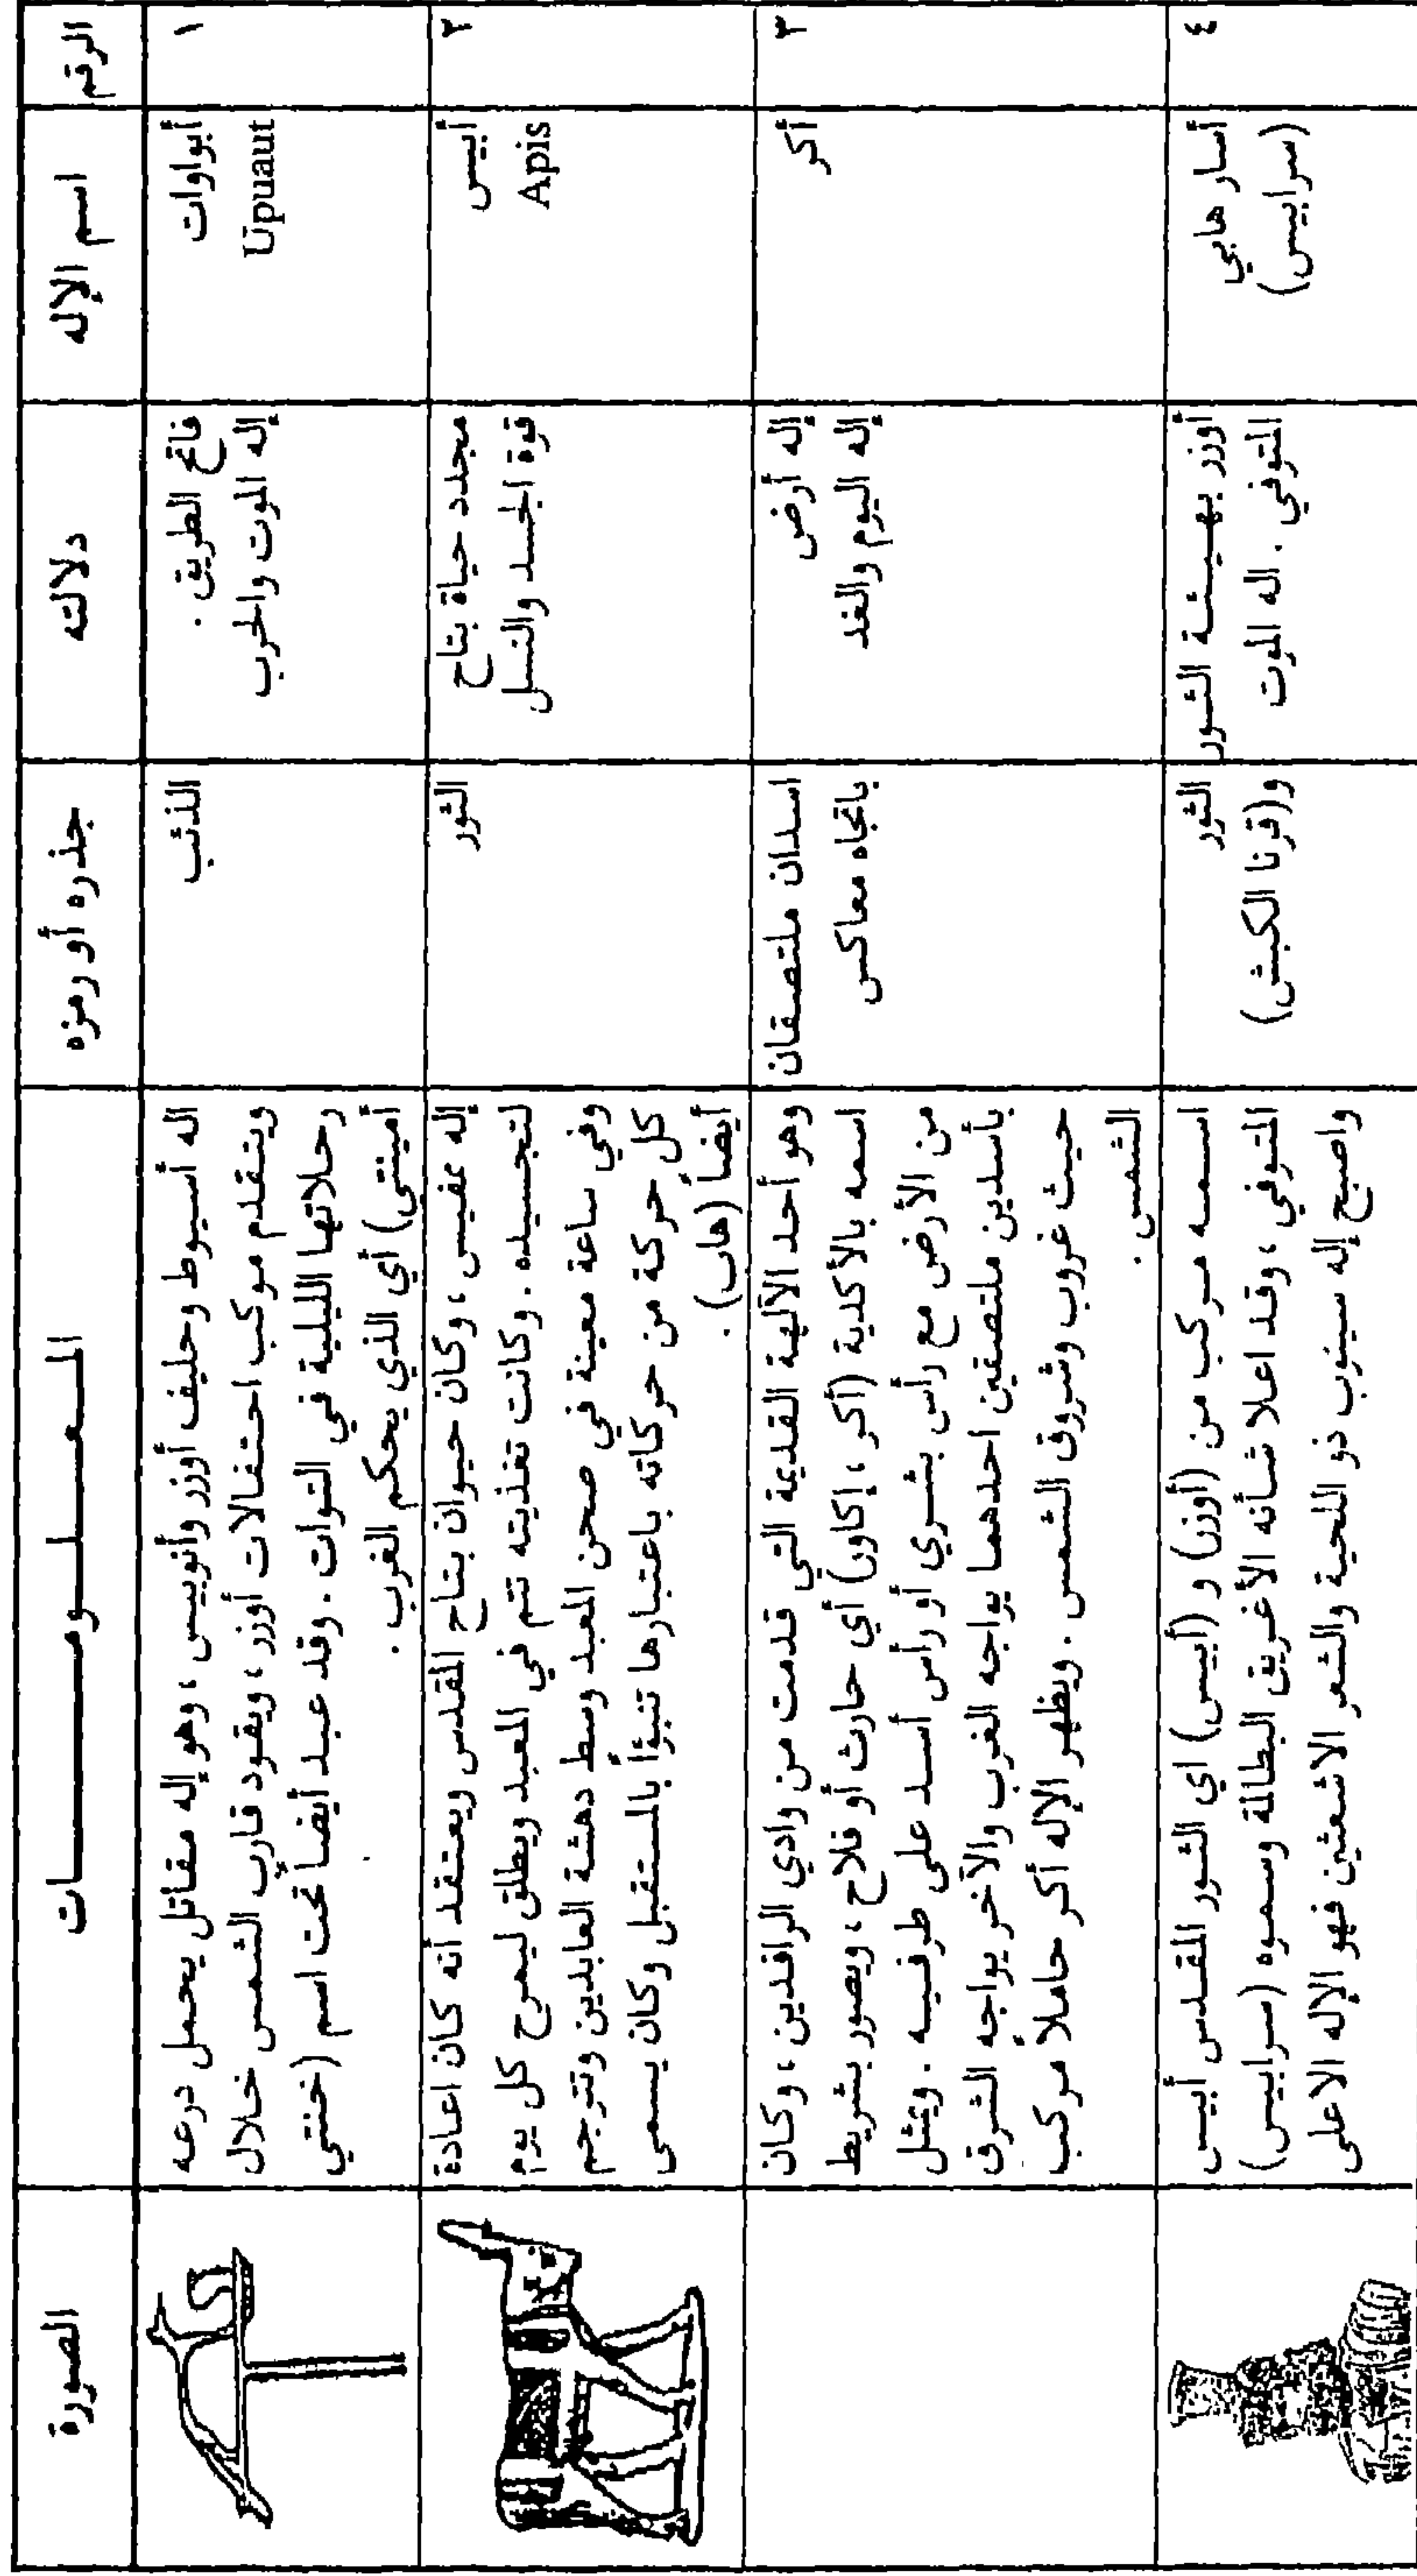 الرقم
اسم الإله
دلالته
جذره أو رمزه
المعلومات
الصورة
١
أبواوات
Upuaut
فاتح الطريق .
إله الموت والحرب
الذئب
اله أسيوط وحليف أوزر وأنوبيس ، وهو إله مقاتل يحمل درعه
ويتقدم موكب احتفالات أوزر ، ويقود قارب الشمس خلال
رحلاتها الليلية في التوات . وقد عبد أيضاً تحت اسم (خنتي
أمينتي) أي الذي يحكم الغرب .
٢
أبيس
Apis
مجدد حياة بتاح
قوة الجسد والنسل
الثور
إله ممفيس ، وكان حيوان بتاح المقدس ويعتقد أنه كان اعادة
لتجسيده . وكانت تغذيته تتم في المعبد ويطلق ليمرح كل يوم
وفي ساعة معينة في صحن المعبد وسط دهشة العابدين وتترجم
كل حركة من حركاته باعتبارها تنبؤاً بالمستقبل وكان يسمى
أيضاً (هاب) .
٣
أكر
إله أرض
إله اليوم والغد
اسدان ملتصقان
باتجاه معاكس
وهو أحد الآلهة القديمة التي قدمت من وادي الرافدين ، وكان
اسمه بالأكدية (أكر ، إكاور) أي حارث أو فلاح ، ويصور بشريط
من الأرض مع رأس بشري أو رأس أسد على طرفيه . ويمثل
بأسدين ملتصقين احدهما يواجه الغرب والآخر يواجه الشرق
حيث غروب وشروق الشمس . ويظهر الإله أكر حاملاً مركب
الشمس .
٤
أسار هابي
(سرابيس)
أوزر بهيئة الثور
المتوفي . اله الموت
الثور
و(قرنا الكبش)
اسمه مركب من (أوزر) و (أبيس) اي الثور المقدس أبيس
المتوفي ، وقد اعلا شأنه الأغريق البطالمة وسموه (سرابيس)
واصبح إله سينوب ذو اللحية والشعر الاشعثين فهو الإله الاعلى